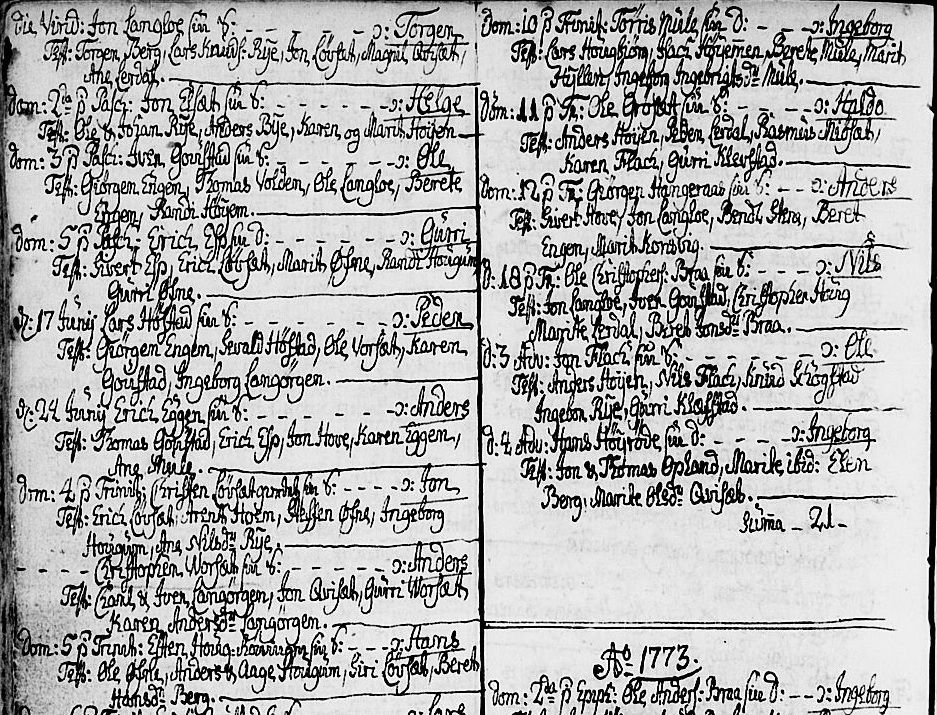 Die Virid: Jon Langloe sin S: - - - - - ɔ: Torgen
Test: Torgen, Berg, Lars Knuds: Rÿe, Jon Löfsæt, Magnil
Ane Lerdal.
dom: 2da p Pasch: Jon sin S: - - - - - ɔ: Helge
Test: Ole & Johan Rÿe, Anders Bÿe, Karen, og Marit Hoijem
dom: 3 p Pasch: Iver Goustad sin S: - - - - - ɔ: Ole
Test: Giörgen Engen, Thomas Volden, Ole Langloe, Berete
Engen, Randi Höyem.
dom: 5 p Pasch: Erich Esp sin D: - - - - - ɔ: Gürri
Test: Sivert Esp, Erich Löfsæt, Marit Öfne, Randi Hougum
Gürri Öfne.
d: 17 Junij Lars Höstad sin S: - - - - - ɔ: Peder
Test: Giörgem Engen, Sevald Höstad, Ole Vorsæt, Karen
Goustad, Ingeborg Langörgen.
d: 24 Junij Erich Eggen sin S: - - - - - ɔ: Anders
Test: Thomas Goustad, Erich Esp, Jon Hove, Karen Eggen,
Ane Mule.
dom: 4 p Trinit: Christen Löfsæt sin S: - - - - ɔ: Jon
Test: Erich Löfsæt, Arent Hoem, Steffen Öfne, Ingeborg
Hougum, Ane Nilsdr Rÿe.
- - - - Christopher Worsæt sin S: - - - - ɔ: Anders
Test: & Iver Langörgen, Jon Qvisæt, Gürri Worsæt
Karen Andersdr Langörgen.
Dom: 5 p Trinit: Esten Houg sin S: - - ɔ: Hans
Test: Ole Anders & Aage Hougum, Siri Löfsæt, Beret
Hansdr Berg.
Lars
Dom: 10 p Trinit: Torris Mule sin D: - - - ɔ: Ingeborg
Test: Lars Houghom, Jaci Höyemen, Beret Mule, Marit
Hÿllen, Ingebor Ingebrigtsdr Mule.
dom: 11 p Tr: Ole sin S: - - - - ɔ: Haldo
Test: Anders Hoyen, Peder Lerdal, Rasmus
Karen Flach, Gürri Klefstad.
dom: 12 p Tr: Giörgen Hangeraas sin S: - - ɔ: Anders
Test: Sivert Hove, Jon Langloe, Bendt Stena, Beret
Engen, Marit Korsvig.
d: 18 p Tr: Ole Christophers: Braa sin S: - - - - ɔ: Nils
Test: Jon Langloe, Iver Goustad, Christopher Houg
Maritte Lerdal, Beret Jonsdr Braa.
d: 3 Adv: Jon Flach sin S: - - - - - ɔ: Ole
Test: Anders Hoijen, Nils Flach, Knud Skogstad
Ingebor Rÿe, Gürri Klefstad.
d: 4 Adv: Hans Höyrode sin D: - - - - ɔ: Ingeborg
Test: Jon & Thomas Opland, Marite, ibid: Elen
Berg, Marite Olsdr Qvisæt.
Suma - 21 -
Ao 1773.
dom: 2da p Epiph: Ole Anders: Braa sin D: - - ɔ: Ingeborg